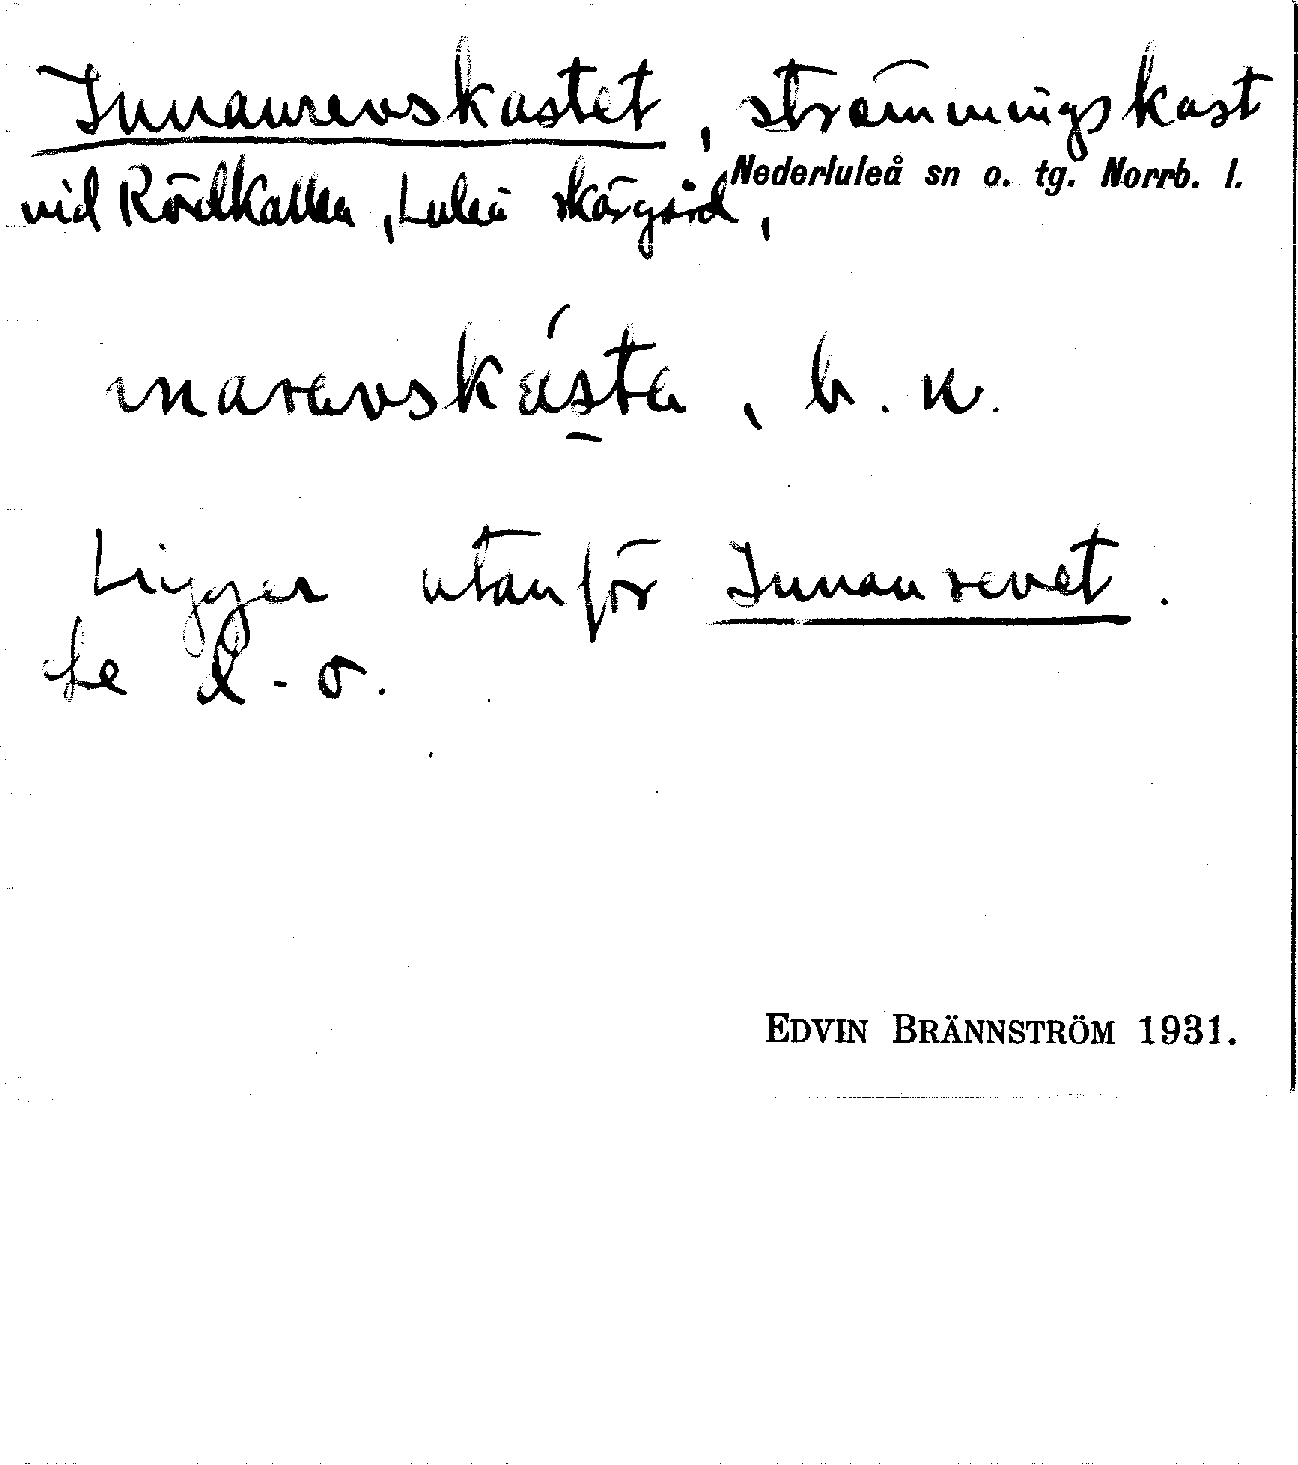 Innanrevskastet, strömmingskast
Nederluleå sn o. tg. Norrb. l.
vid Rödkallen, Luleå skärgård,
inarevskásta, b. n.
Ligger utanför Innanrevet.
Se d-o.
EDVIN BRÄNNSTRÖM 1931.